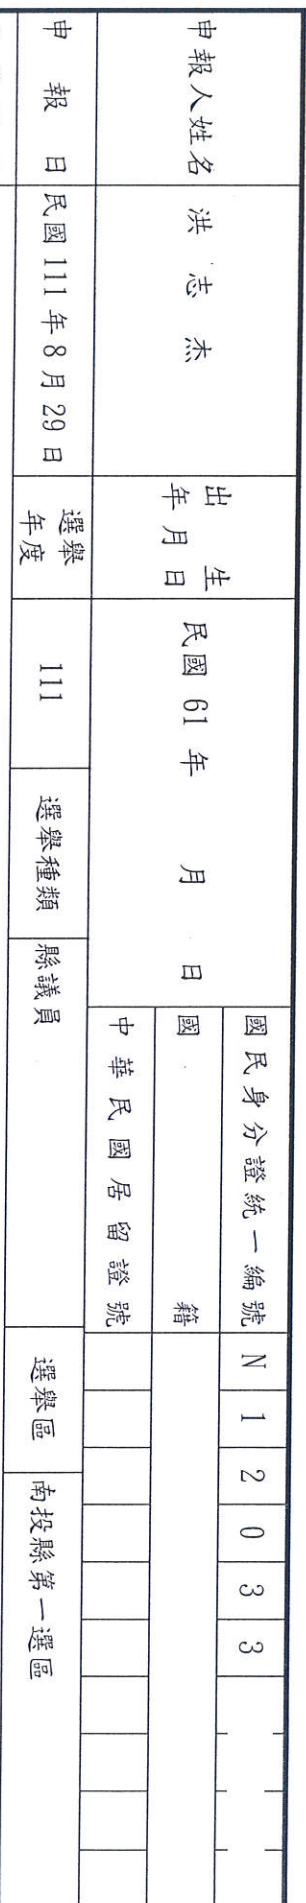 申報人姓名 洪志杰 出生年月日 民國 61 年 月 日 國民身分證統一編號 N 1 2 0 3 3
國籍
中華民國居留證號
申報日 民國 111 年 8 月 29 日 選舉年度 111 選舉種類 縣議員 選舉區 南投縣第一選區